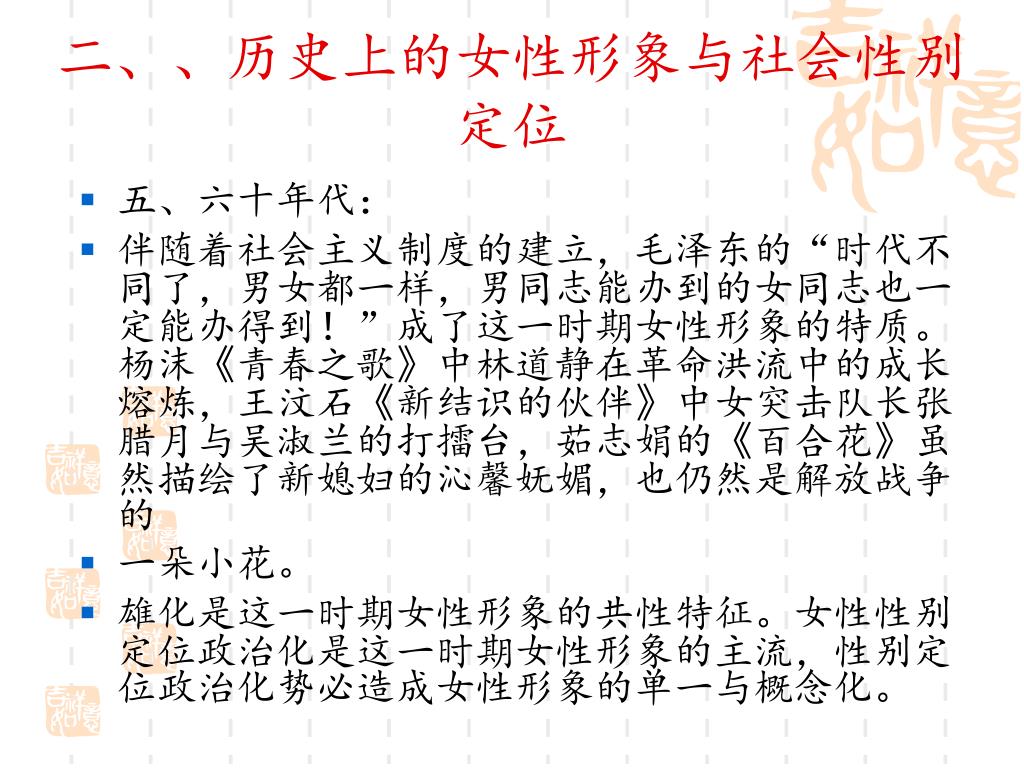 二、、历史上的女性形象与社会性别
定位
五、六十年代：
伴随着社会主义制度的建立，毛泽东的“时代不
同了，男女都一样，男同志能办到的女同志也一
定能办得到！”成了这一时期女性形象的特质。
杨沫《青春之歌》中林道静在革命洪流中的成长
熔炼，王汶石《新结识的伙伴》中女突击队长张
腊月与吴淑兰的打擂台，茹志娟的《百合花》虽
然描绘了新媳妇的沁馨妩媚，也仍然是解放战争
的
一朵小花。
雄化是这一时期女性形象的共性特征。女性性别
定位政治化是这一时期女性形象的主流，性别定
位政治化势必造成女性形象的单一与概念化。
吉祥
如意
吉祥
如意
吉祥
如意
吉祥
如意
吉祥
如意
吉祥
如意
吉祥
如意